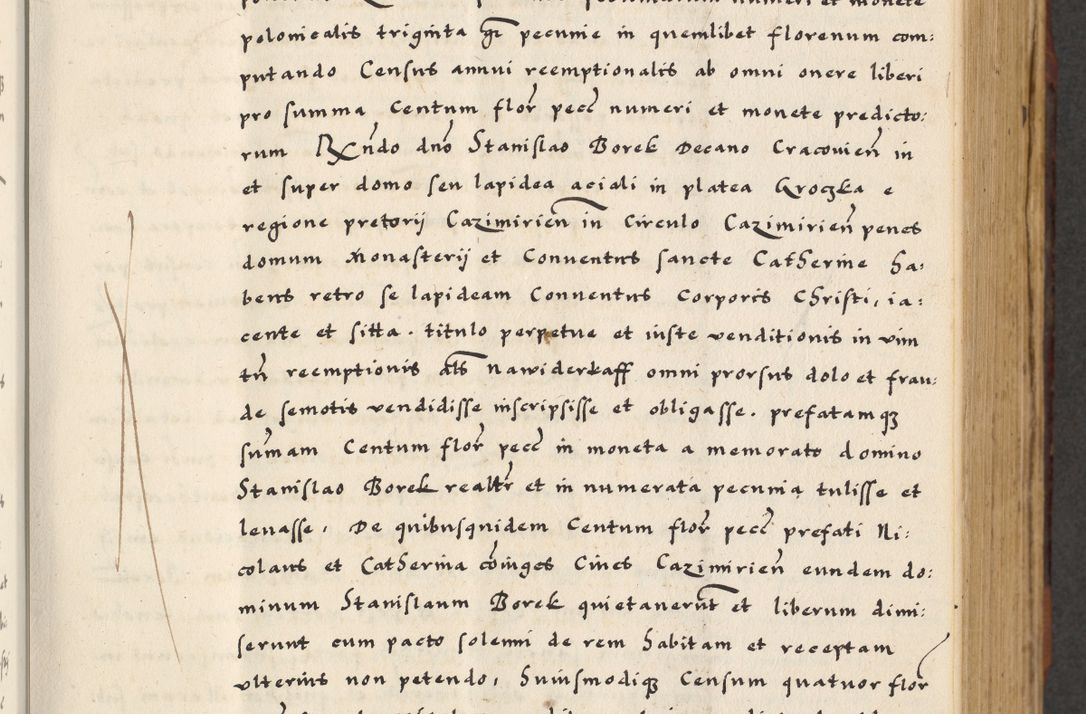 numeri et monete
polonicalis triginta gr pecunie in quemlibet florenum com:
putando Census annui reemptionalis ab omni onere liberi
pro summa Centum flor pecc numeri et monete predicto:
rum Rndo dno Stanislao Borek Decano Cracovien in
et super domo seu lapidea aciali in platea Groczka e
regione pretorij Cazimirien in Circulo Cazimirien penes
domum Monasterij et Conventus sancte Catherine ha:
bens retro se lapideam Conventus Corporis Christi, ia:
cente et sitta. titulo perpetue et iuste venditionis in vim
tn reemptionis als nawiderkaff omni prorsus dolo et frau:
de semotis vendidisse inscripsisse et obligasse. prefatamq
sumam Centum flor pecc in moneta a memorato domino
Stanislao Borek realtr et in numerata pecunia tulisse et
levasse, De quibusquidem Centum flor pecc prefati Ni:
colaus et Catherina coniuges Cives Cazimirien eundem do:
minum Stanislaum Borek quietaverunt et liberum dimi:
serunt cum pacto solenni de rem habitam et receptam
ulterius non petendo, huiusmodiq Censum quatuor flor